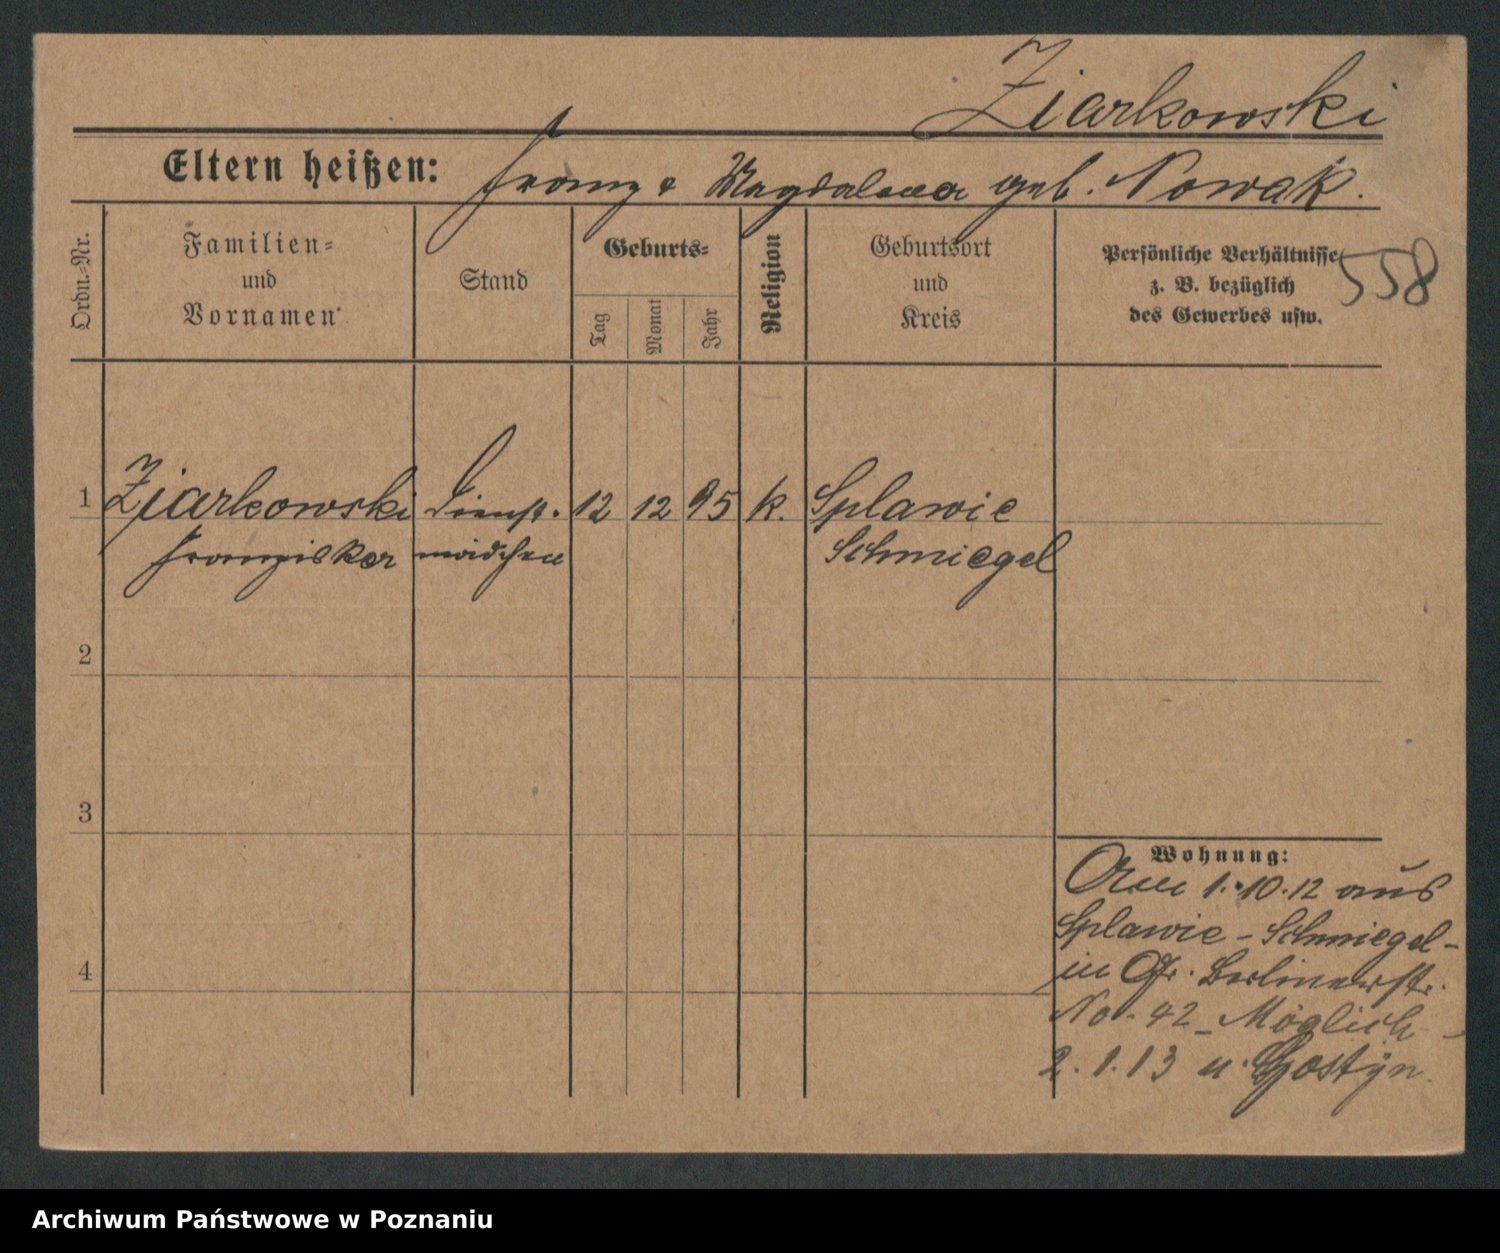 Ziarkowski
Eltern heißen: Franz & Magdalena geb. Nowak.
Ordn.=Nr.
Familien=
und
Vornamen
Stand
Geburts=
Tag
Monat
Jahr
Religion
Geburtsort
und
Kreis
Persönliche Verhältnisse
z. B. bezüglich
des Gewerbes usw.
558
1 Ziarkowski Dienst- 12 12 95 k. Splawie
Franziska mädchen Schmiegel
2
3
4
Wohnung:
Am 1.10.12 aus
Splawie - Schmiegel -
in Gr. Berlinerstr.
No. 42 - Möglich -
2.1.13 n. Gostyn.
Archiwum Państwowe w Poznaniu